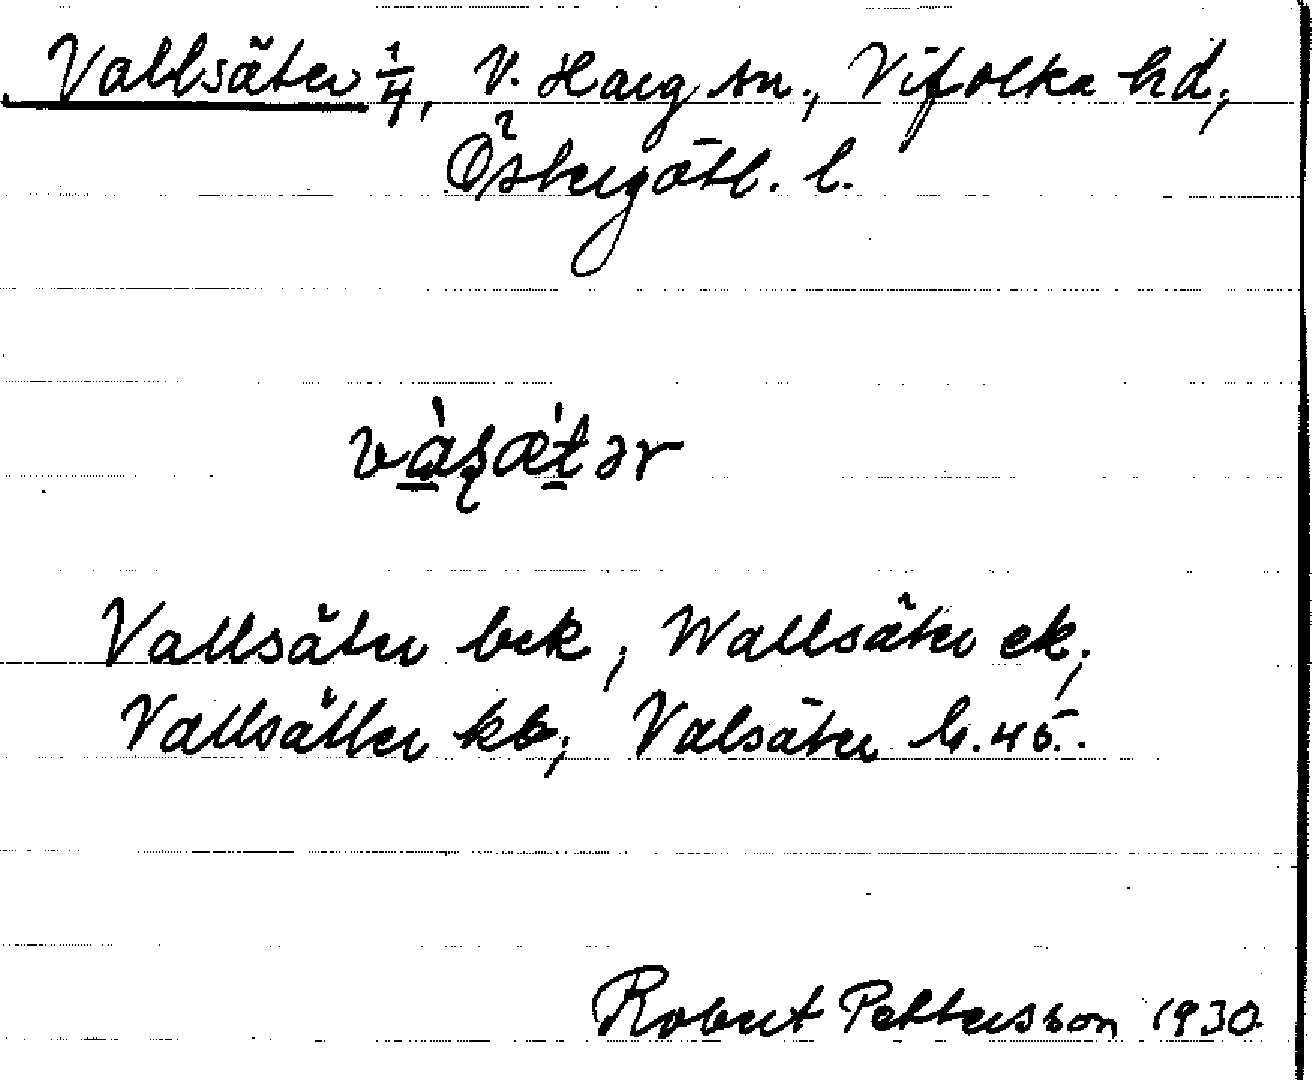 Vallsäter 1/4, V. Harg sn., Vifolka hd,
Östergötl. l.
vàʂǽtər
Vallsäter bek, Wallsäter ek,
Vallsätter kb, Valsäter h. 45.
Robert Pettersson 1930